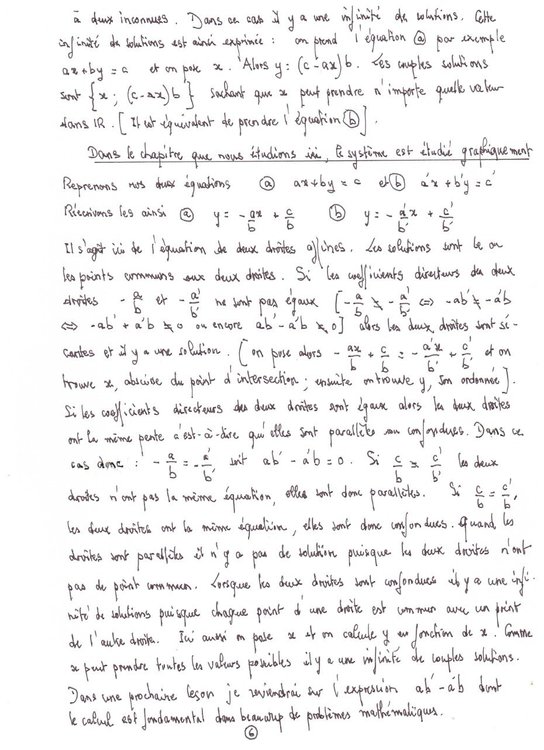 à deux inconnues. Dans ce cas il y a une infinité de solutions. Cette
infinité de solutions est ainsi exprimée : on prend l'équation ⓐ par exemple
ax+by = c et on pose x. Alors y = (c-ax)b. Les couples solutions
sont {x ; (c-ax)b} sachant que x peut prendre n'importe quelle valeur
dans IR. [Il est équivalent de prendre l'équation ⓑ].
Dans le chapitre que nous étudions ici, le système est étudié graphiquement
Reprenons nos deux équations ⓐ ax+by = c et ⓑ a'x + b'y = c'
Réécrivons les ainsi ⓐ y = -ax/b + c/b ⓑ y = -a'x/b' + c'/b'
Il s'agit ici de l'équation de deux droites affines. Les solutions sont le ou
les points communs aux deux droites. Si les coefficients directeurs des deux
droites -a/b et -a'/b' ne sont pas égaux [-a/b ≠ -a'/b' ⇔ -ab' ≠ -a'b
⇔ -ab' + a'b ≠ 0 ou encore ab' - a'b ≠ 0] alors les deux droites sont sé-
cantes et il y a une solution. [on pose alors -ax/b + c/b = -a'x/b' + c'/b' et on
trouve x, abscisse du point d'intersection ; ensuite on trouve y, son ordonnée].
Si les coefficients directeurs des deux droites sont égaux alors les deux droites
ont la même pente c'est-à-dire qu'elles sont parallèles ou confondues. Dans ce
cas donc : -a/b = -a'/b' soit ab' - a'b = 0. Si c/b ≠ c'/b' les deux
droites n'ont pas la même équation, elles sont donc parallèles. Si c/b = c'/b',
les deux droites ont la même équation, elles sont donc confondues. Quand les
droites sont parallèles il n'y a pas de solution puisque les deux droites n'ont
pas de point commun. Lorsque les deux droites sont confondues il y a une infi-
nité de solutions puisque chaque point d'une droite est commun avec un point
de l'autre droite. Ici aussi on pose x et on calcule y en fonction de x. Comme
x peut prendre toutes les valeurs possibles il y a une infinité de couples solutions.
Dans une prochaine leçon je reviendrai sur l'expression ab' - a'b dont
le calcul est fondamental dans beaucoup de problèmes mathématiques.
⑥